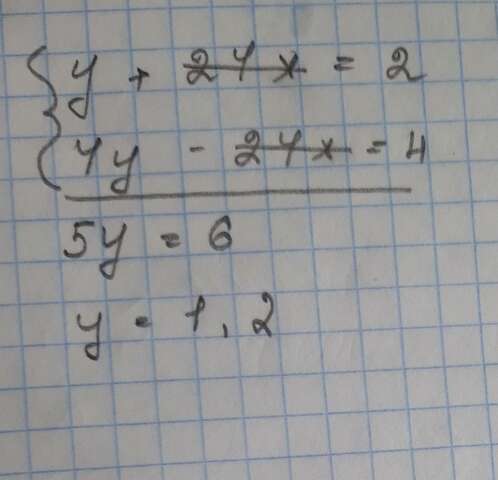 y + 24x = 2
4y - 24x = 4
5y = 6
y = 1,2